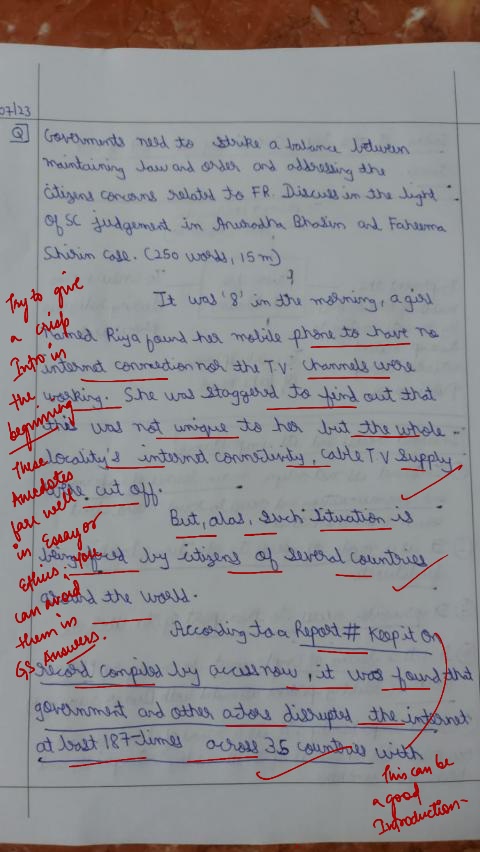 07/23
Q Goverments need to strike a balance between
maintaining law and order and addressing the
citizens concerns related to FR. Discuss in the light
of SC judgement in Anuradha Bhasin and Faheema
Shirin case. (250 words, 15 m)
It was '8' in the morning, a girl
named Riya found her mobile phone to have no
internet connection nor the T.V. channels were
working. She was staggerd to find out that
this was not unique to her but the whole
locality's internet connectivity, cable TV supply
were cut off.
But, alas, such situation is
being faced by citizens of several countries
around the world.
According to a Report # Keep it on
record compiled by accessnow, it was found that
government and other actors disrupted the internet
at least 187-times across 35 countries with
Try to give
a crisp
Intro in
the
beginning
These
Anecdotes
fare well
in Essay or
Ethics, you
can avoid
them in
GS Answers.
This can be
a good
Introduction-